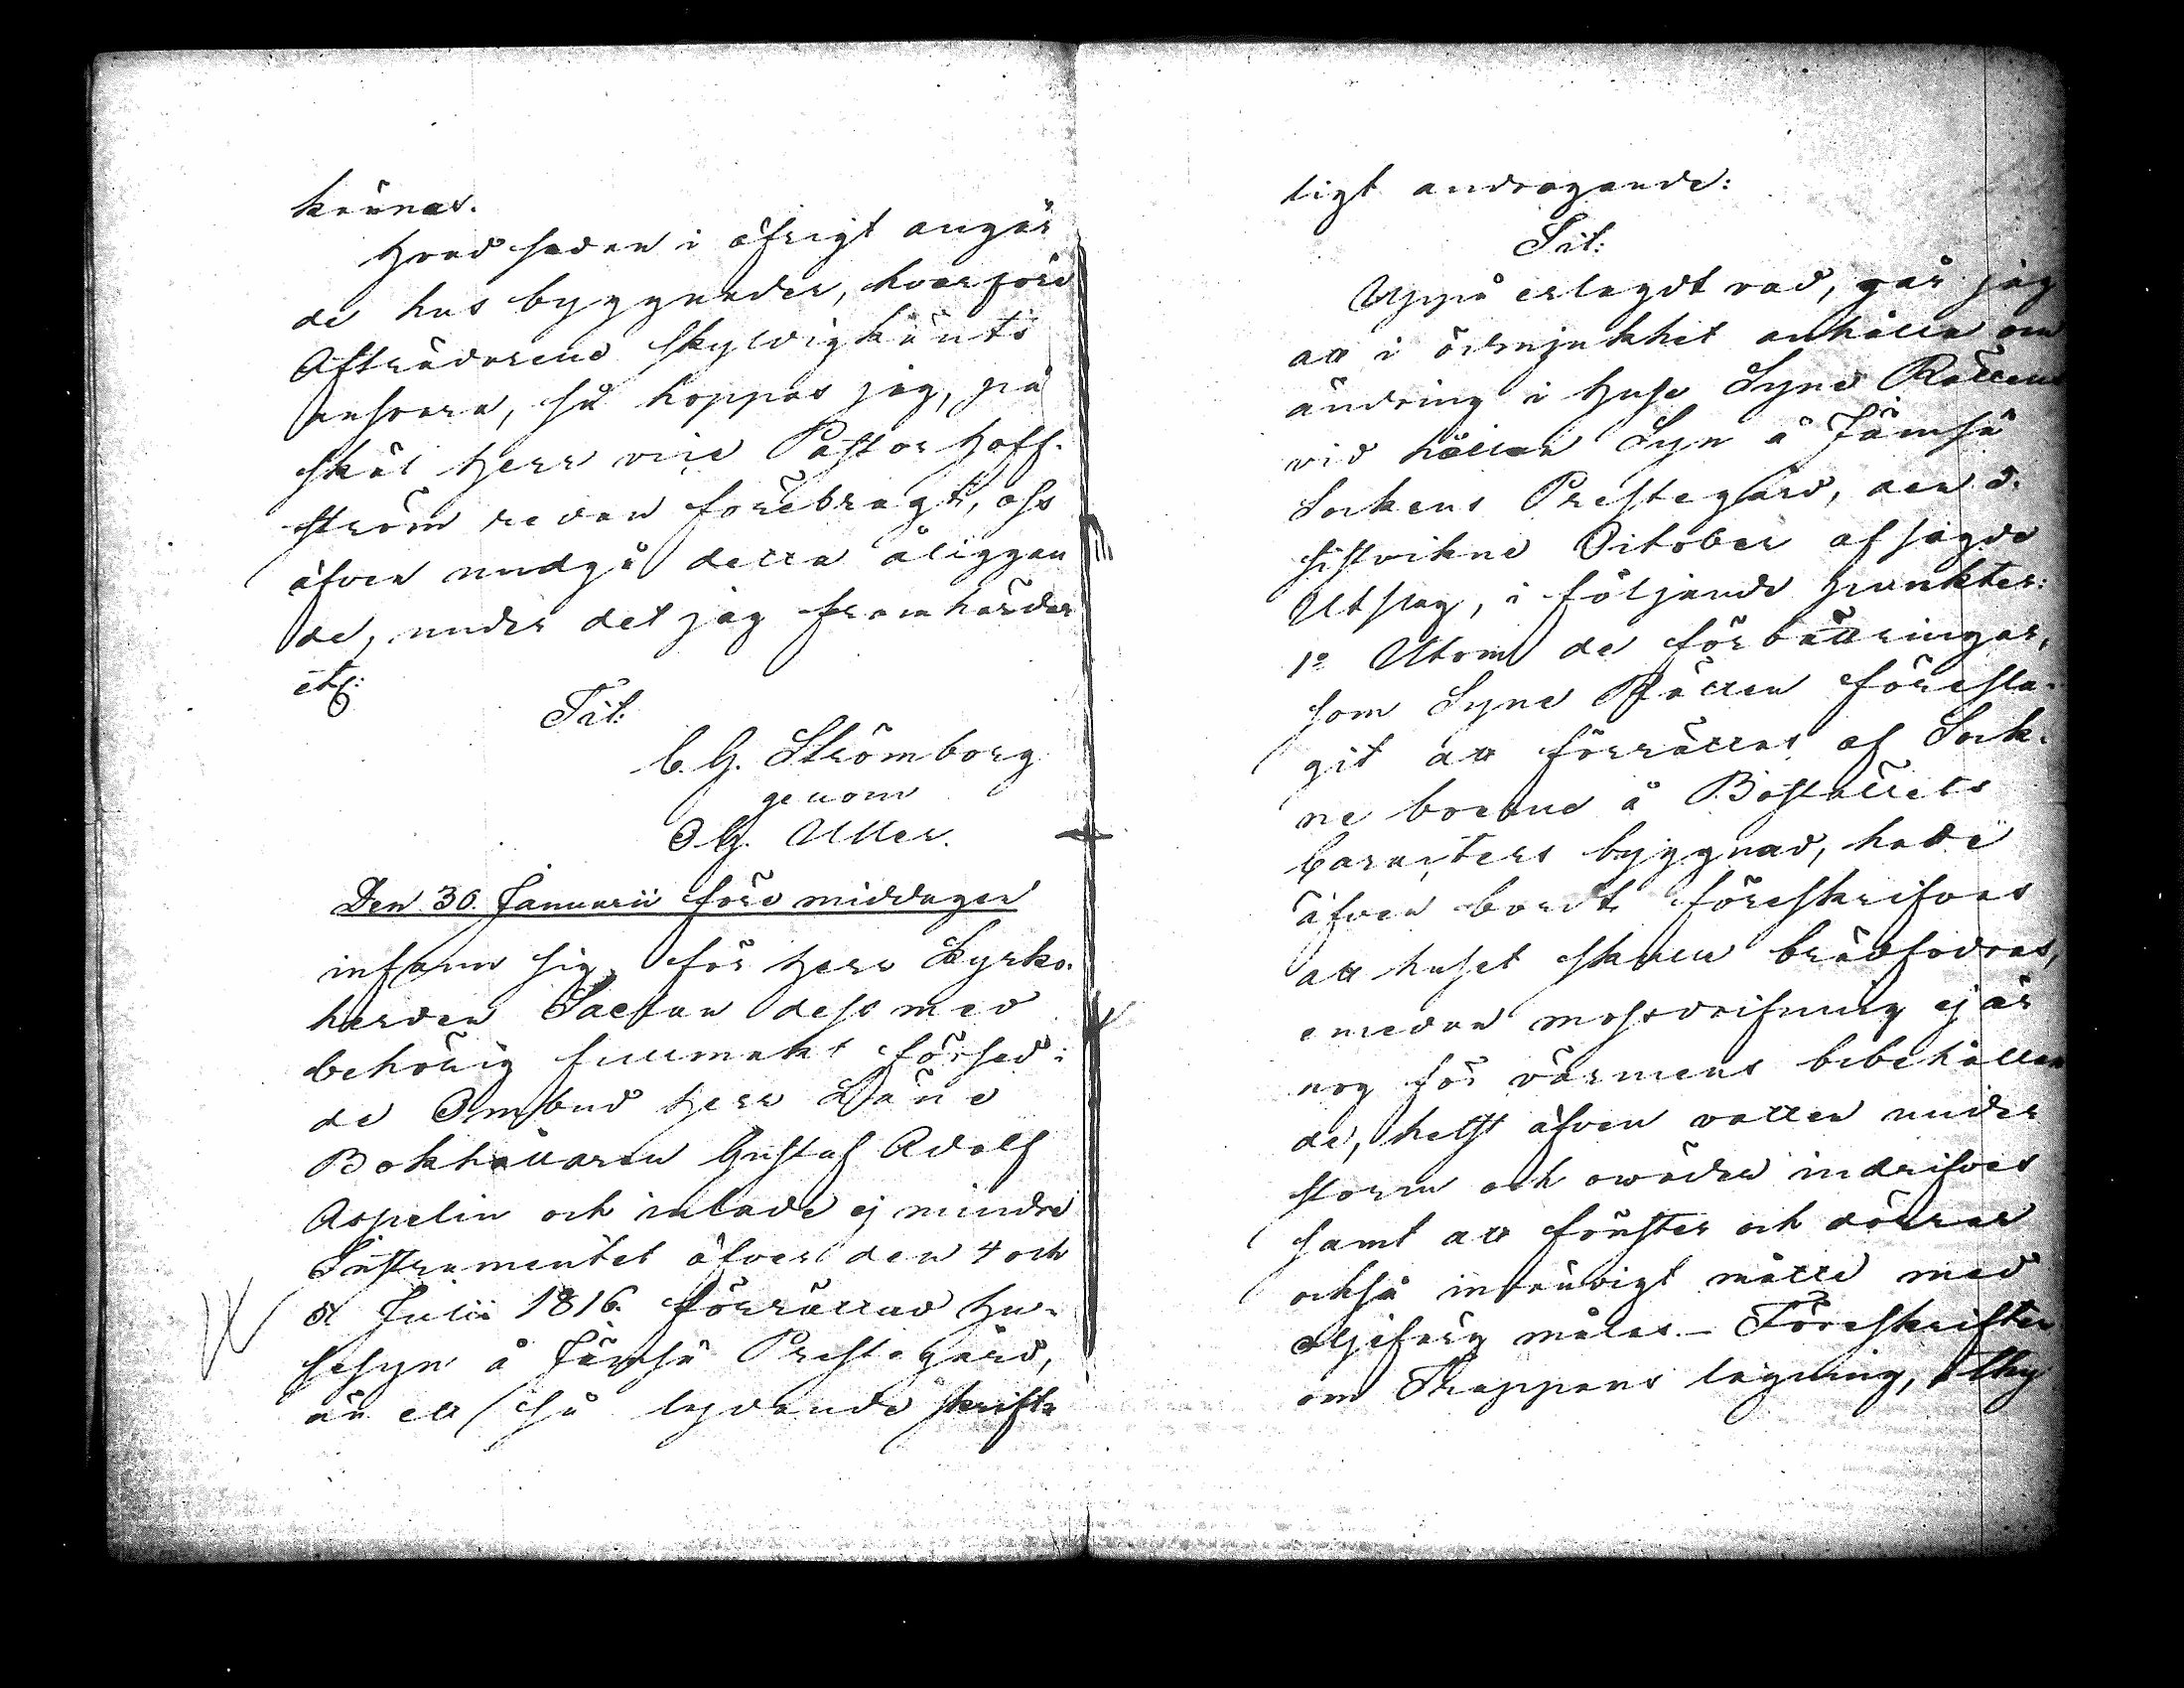 kännas.
Hvad sedan i öfrigt angår
de hus byggnader, hvarföre
Afträdarene skyldigkänts
ansvara, så hoppas jag, på
skäl Herr vice Pastor Hoff-
ström redan förebragt, oss
äfven undgå detta åliggan
de, under det jag framhärdar
etc:
Tit:
C. G. Strömborg
genom
O G. Utter.
Den 30. Januarii före middagen
infann sig, för Herr Kyrko-
herden Saelan dess med
behörig fullmakt försed-
de Ombud Herr Läns
Bokhållaren Gustaf Adolf
Aspelin och inlade ej mindre
Instrumentet öfver den 4 och
5 Julii 1816. förrättad Hu-
sesyn å Jämsä Prestegård,
än ett så lydande skrift-
ligt andragande:
Tit:
Uppå erlagdt vad, går jag
att i ödmjukhet anhålla om
ändring i Huse Syne Rättens
vid hållen Syn å Jämsä
Sockens Prestegård, den 3.
sistvikne October afsagde
Utslag, i följande punkter:
1o Utom de förbättringar,
som Syne Rätten föresla-
git att förrättas af Sock-
ne boerne å Boställets
Caracters byggnad, hade
äfven bordt föreskrifvas
att huset skulle brädfodras,
emedan mossdrifning ej är
nog för värmens bibehållan
de, helst äfven vatten under
storm och oväder indrifves
samt att fönster och dörrar
också inwändigt måtte med
oljefärg målas. - Föreskriften
om Trappans lagning, thy